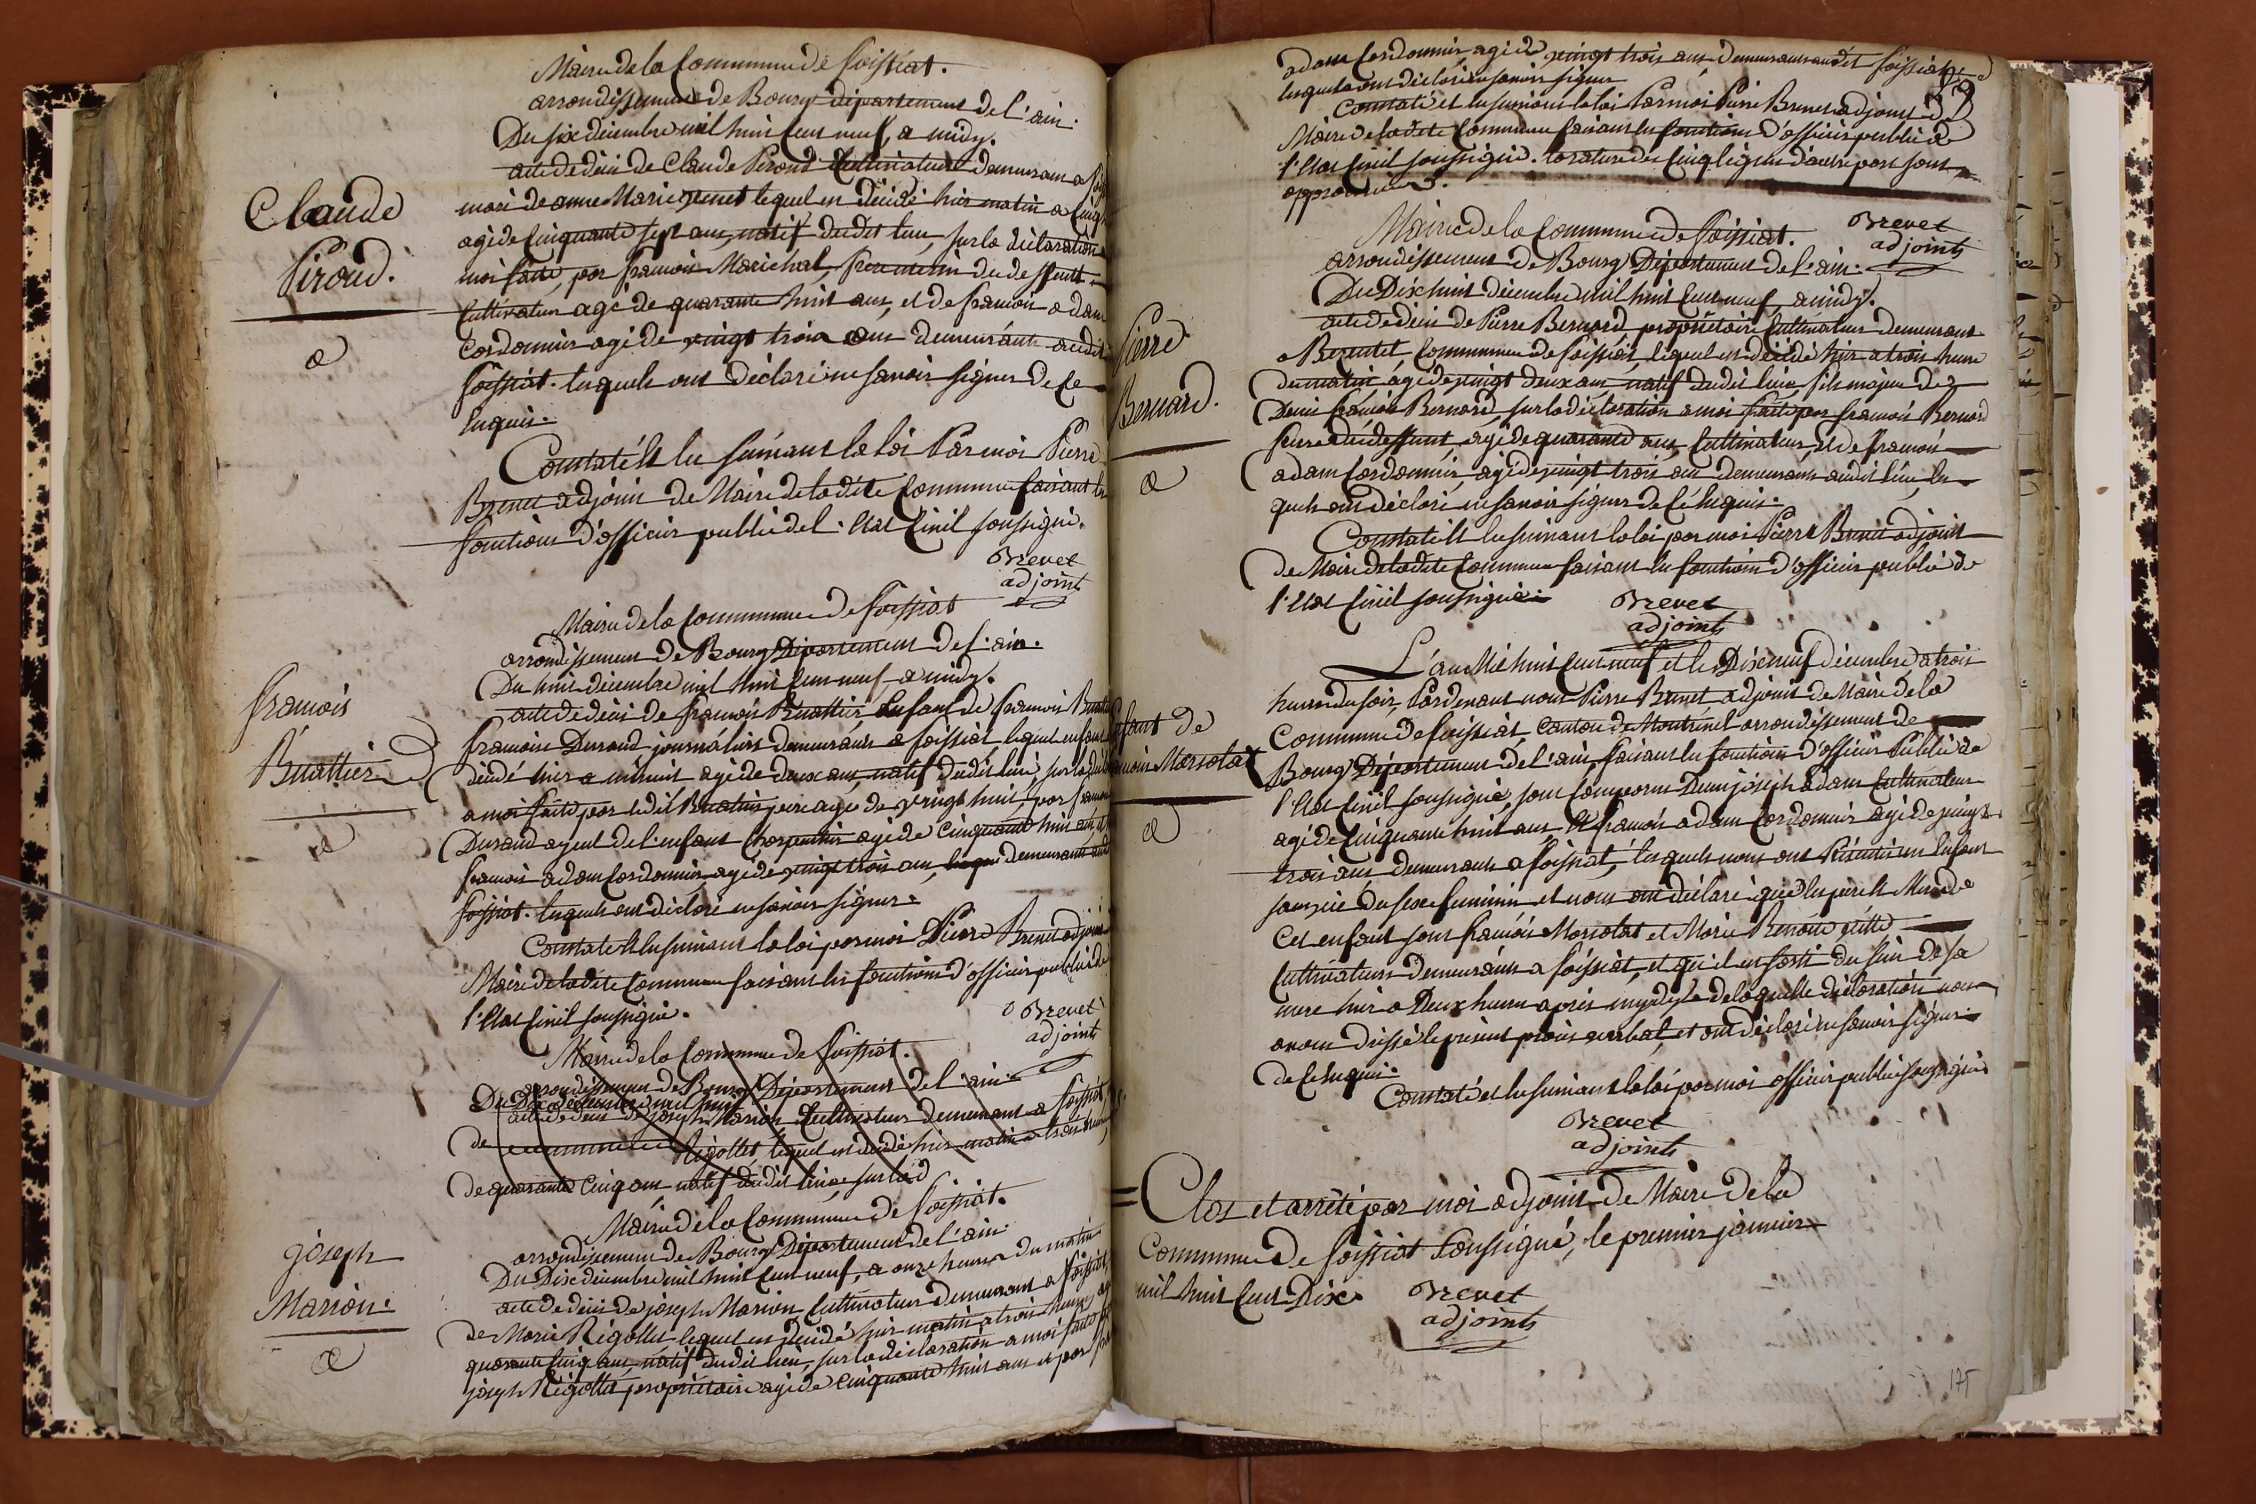 Mairie de la Commune de foissiat.
arrondissement de Bourg département de l'ain.
Du six décembre mil huit Cent neuf, a midy.
acte de décès de Claude Piroud Cultivateur demeurant a
mari de anne Marie lequel est décédé hier matin a Cinq
agé de Cinquante sept ans, natif dudit lieu, sur la déclaration a
moi faite, par françois Maréchal, frere uterin du deffunt
Cultivateur agé de quarante huit ans, et de francois adam
Cordonnier agé de vingt trois ans demeurants audit
foissiat. lesquels ont déclaré ne savoir signer de Ce
Enquis.
Claude
Piroud.
Constaté Et lu suivant la loi Par moi Pierre
Brevet adjoint de Maire de la dite Commune faisant les
fonctions d'officier public de l'Etat Civil soussigné.
Brevet
adjoint
Mairie de la Commune de foissiat
arrondissement de Bourg Département de l'ain.
Du huit décembre mil huit Cent neuf a midy.
acte de décès de françois Buattier Enfant de francois
francoise Durand journaliers demeurants a foissiat lequel enfant
décédé hier a minuit agé de deux ans, natif dudit lieu, sur la
a moi faite par ledit Buatier pere agé de vingt huit, par
Durand ayeul de l'enfant Charpentier agé de Cinquante huit ans,
francois adam Cordonnier, agé de vingt trois ans, demeurants
foissiat. lesquels ont déclaré ne savoir signer.
françois
Buattier
Constaté Et lu suivant la loi par moi Pierre Brevet adjoint
Maire de la dite Commune faisant les fonctions d'officier public de
l'Etat Civil soussigné.
Brevet
adjoint
Mairie de la Commune de foissiat.
arrondissement de Bourg Département de l'ain
Du Dix décembre mil huit
acte de décès de joseph Marion Cultivateur demeurant a foissiat
de Rigollet, lequel est décédé hier matin a trois heures
de quarante Cinq ans natif dudit lieu sur la d
Mairie de la Commune de foissiat.
arrondissement de Bourg Département de l'ain
Du Dix décembre mil huit Cent neuf, a onze heures du matin
acte de décès de joseph Marion Cultivateur demeurant a foissiat
de Marie Rigollet lequel est décédé hier matin a trois heures
quarante Cinq ans natif dudit lieu, sur la déclaration a moi faite
joseph Rigollet propriétaire agé de Cinquante huit ans et par
joseph
Marion.
adam Cordonnier agé de vingt trois ans demeurants audit foissiat
lesquels ont déclaré ne savoir signer
Constaté et lu suivant la loi Par moi Pierre Brevet adjoint de
Maire de la dite Commune faisant les fonctions d'officier public de
l'Etat Civil soussigné. la rature des Cinq lignes d'autre part sont
approuvées.
Brevet
adjoint
Mairie de la Commune de foissiat.
arrondissement de Bourg Département de l'ain.
Du Dix huit décembre mil huit Cent neuf, a midy.
acte de décès de Pierre Bernard, propriétaire Cultivateur demeurant
a Commune de foissiat, lequel est décédé hier a trois heure
du matin agé de vingt deux ans natif dudit lieu, fils majeur de
Denis françois Bernard, sur la déclaration a moi faite par francois Bernard
frere du deffunt, agé de quarante ans, Cultivateur, et de francois
adam Cordonnier, agé de vingt trois ans demeurants audit lieu, les
quels ont déclaré ne savoir signer de Ce Enquis.
Pierre
Bernard.
Constaté Et lu suivant la loi par moi Pierre Brevet adjoint
de Maire de la dite Commune faisant les fonctions d'officier public de
l'Etat Civil soussigné.
Brevet
adjoint
L'an Mil huit Cent neuf et le Dix neuf décembre a trois
heures du soir, Pardevant nous Pierre Brevet adjoint de Maire de la
Commune de foissiat, Canton de Montrevel arrondissement de
Bourg Département de l'ain, faisant les fonctions d'officier Public de
l'Etat Civil soussigné, sont Comparus Deux joseph adam Cultivateur
agé de Cinquante huit ans, Et francois adam Cordonnier agé de vingt
trois ans demeurants a foissiat, lesquels nous ont Présenté un Enfant
sans vie Du sexe feminin et nous ont déclaré que les père Et Mere de
Cet enfant sont françois Marsolat et Marie Benoite
Cultivateurs demeurants a foissiat, et qu'il est sorti du sein de sa
mere hier a Deux heures après mydy de laquelle déclaration nous
avons Dressé le present procès verbal et ont déclaré ne savoir signer
de Ce Enquis.
Enfant de
françois Marsolat
Constaté et lu suivant la loi par moi officier public soussigné
Brevet
adjoint
Clos et arrêté par moi adjoint de Maire de la
Commune de foissiat Soussigné, le premier janvier
mil huit Cent Dix.
Brevet
adjoint
175